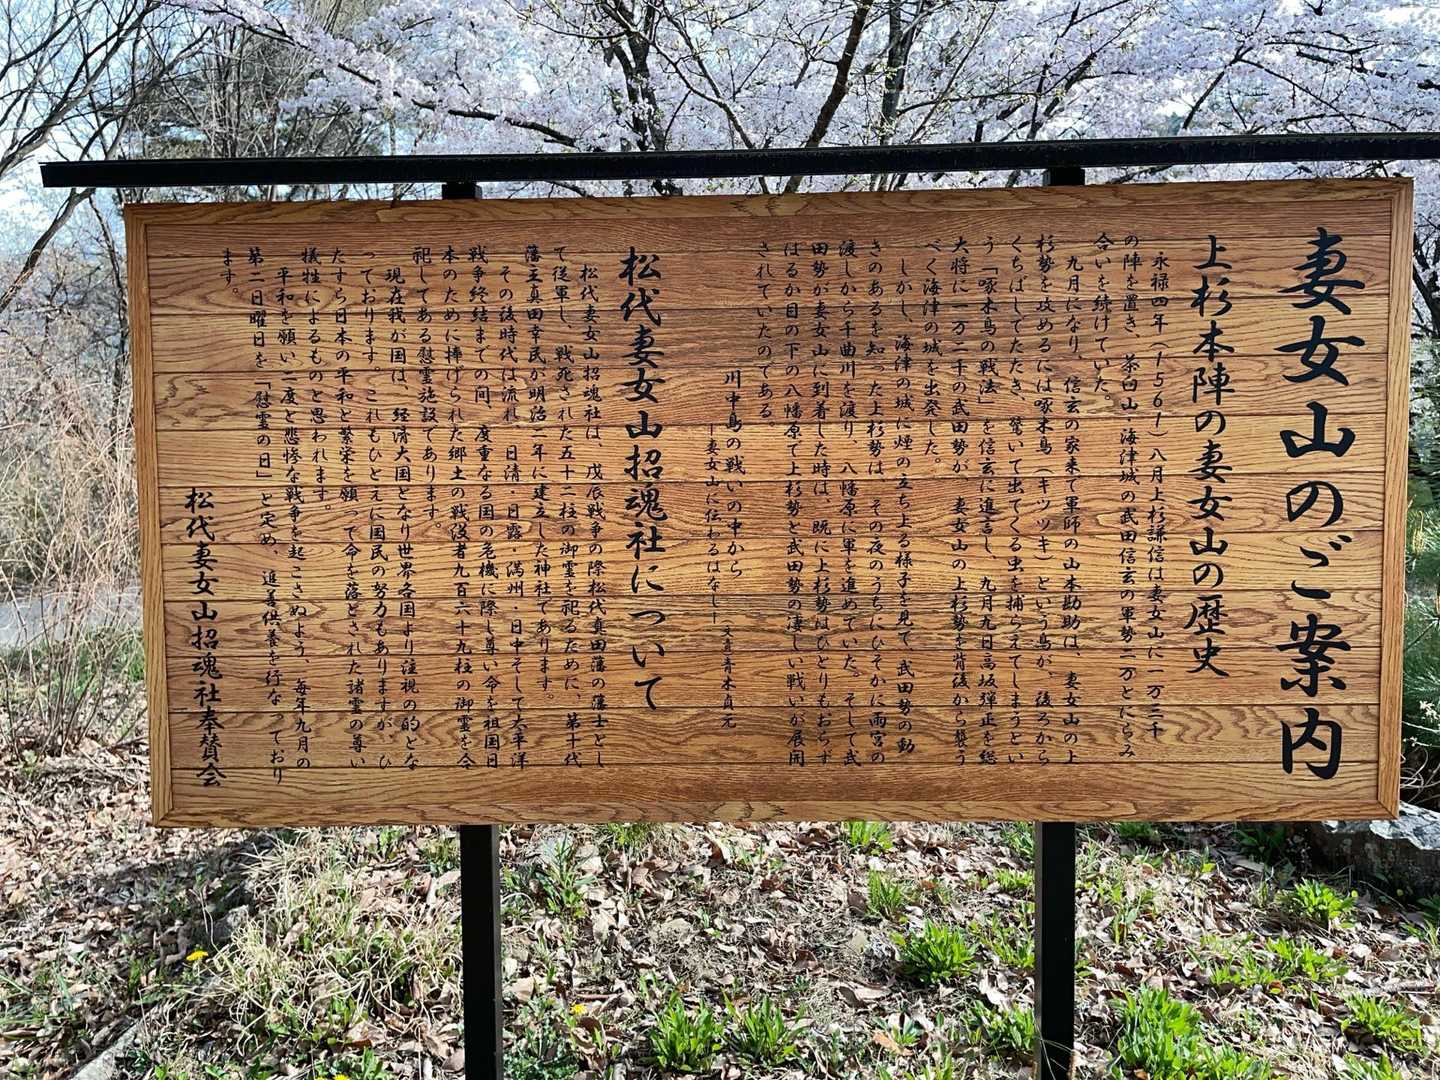 妻女山のご案内
上杉本陣の妻女山の歴史
永禄四年(1561)八月上杉謙信は妻女山に一万三千
の陣を置き、茶臼山、海津城の武田信玄の軍勢二万とにらみ
合いを続けていた。
九月になり、信玄の家来で軍師の山本勘助は、妻女山の上
杉勢を攻めるには啄木鳥(キツツキ)という鳥が、後ろから
くちばしでたたき、驚いて出てくる虫を捕らえてしまうとい
う「啄木鳥の戦法」を信玄に進言し、九月九日高坂弾正を総
大将に一万二千の武田勢が、妻女山の上杉勢を背後から襲う
べく海津の城を出発した。
しかし、海津の城に煙の立ち上る様子を見て、武田勢の動
きのあるを知った上杉勢は、その夜のうちにひそかに雨宮の
渡しから千曲川を渡り、八幡原に軍を進めていた。そして武
田勢が妻女山に到着した時は、既に上杉勢はひとりもおらず
はるか目の下の八幡原で上杉勢と武田勢の凄しい戦いが展開
されていたのである。
川中島の戦いの中から
―妻女山に伝わるはなし― 文責 青木貞元
松代妻女山招魂社について
松代妻女山招魂社は、戊辰戦争の際松代真田藩の藩士とし
て従軍し、戦死された五十二柱の御霊を祀るために、第十代
藩主真田幸民が明治二年に建立した神社であります。
その後時代は流れ、日清・日露・満州・日中そして太平洋
戦争終結までの間、度重なる国の危機に際し尊い命を祖国日
本のために捧げられた郷土の戦没者九百六十九柱の御霊を合
祀してある慰霊施設であります。
現在我が国は、経済大国となり世界各国より注視の的とな
っております。これもひとえに国民の努力もありますが、ひ
たすら日本の平和と繁栄を願って命を落とされた諸霊の尊い
犠牲によるものと思われます。
平和を願い二度と悲惨な戦争を起こさぬよう、毎年九月の
第二日曜日を「慰霊の日」と定め、追善供養を行なっており
ます。
松代妻女山招魂社奉賛会